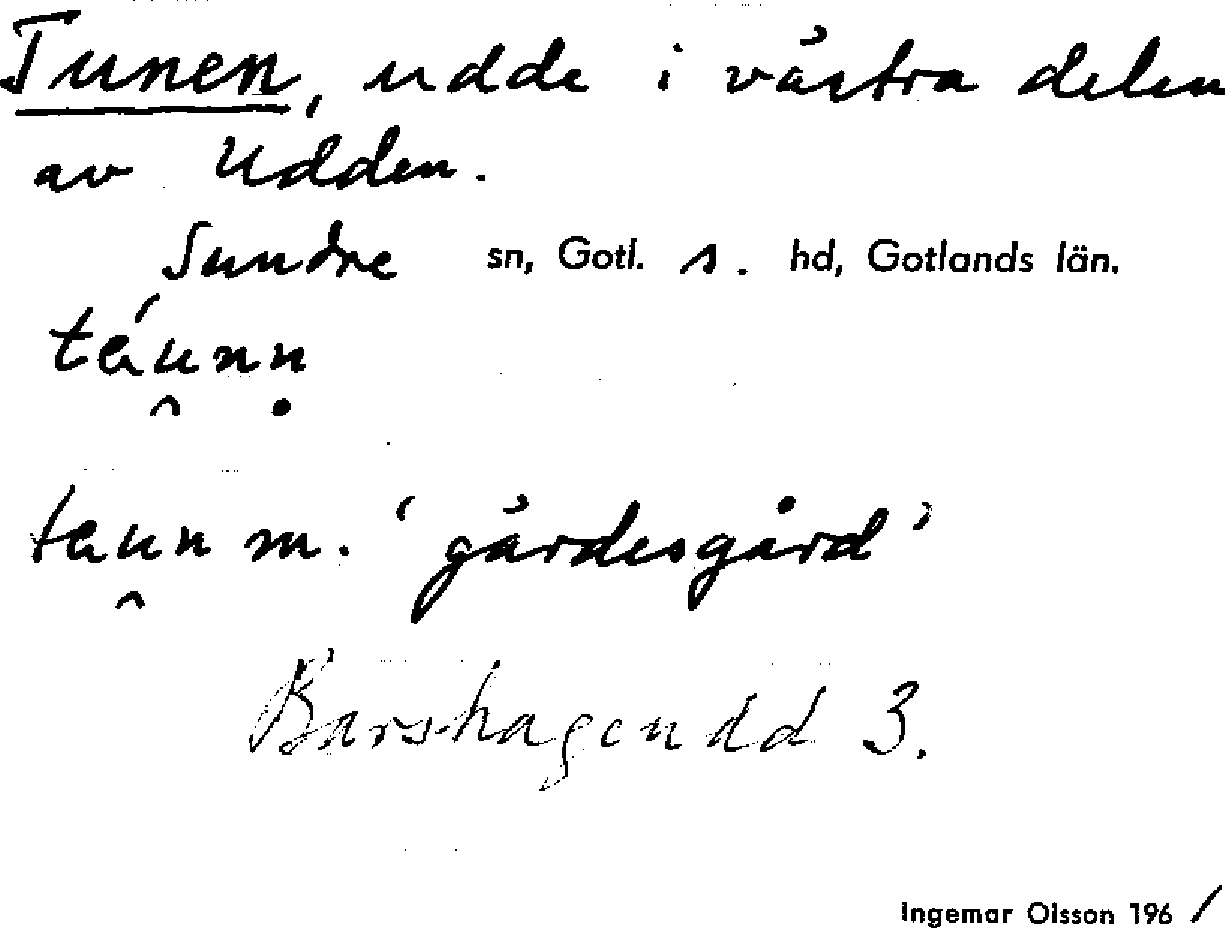 Tunen, udde i västra delen
av Udden.
Sundre sn, Gotl. s. hd, Gotlands län.
táu̯nn̥
tau̯n m. 'gärdesgård'
Barshageudd 3.
Ingemar Olsson 196 /